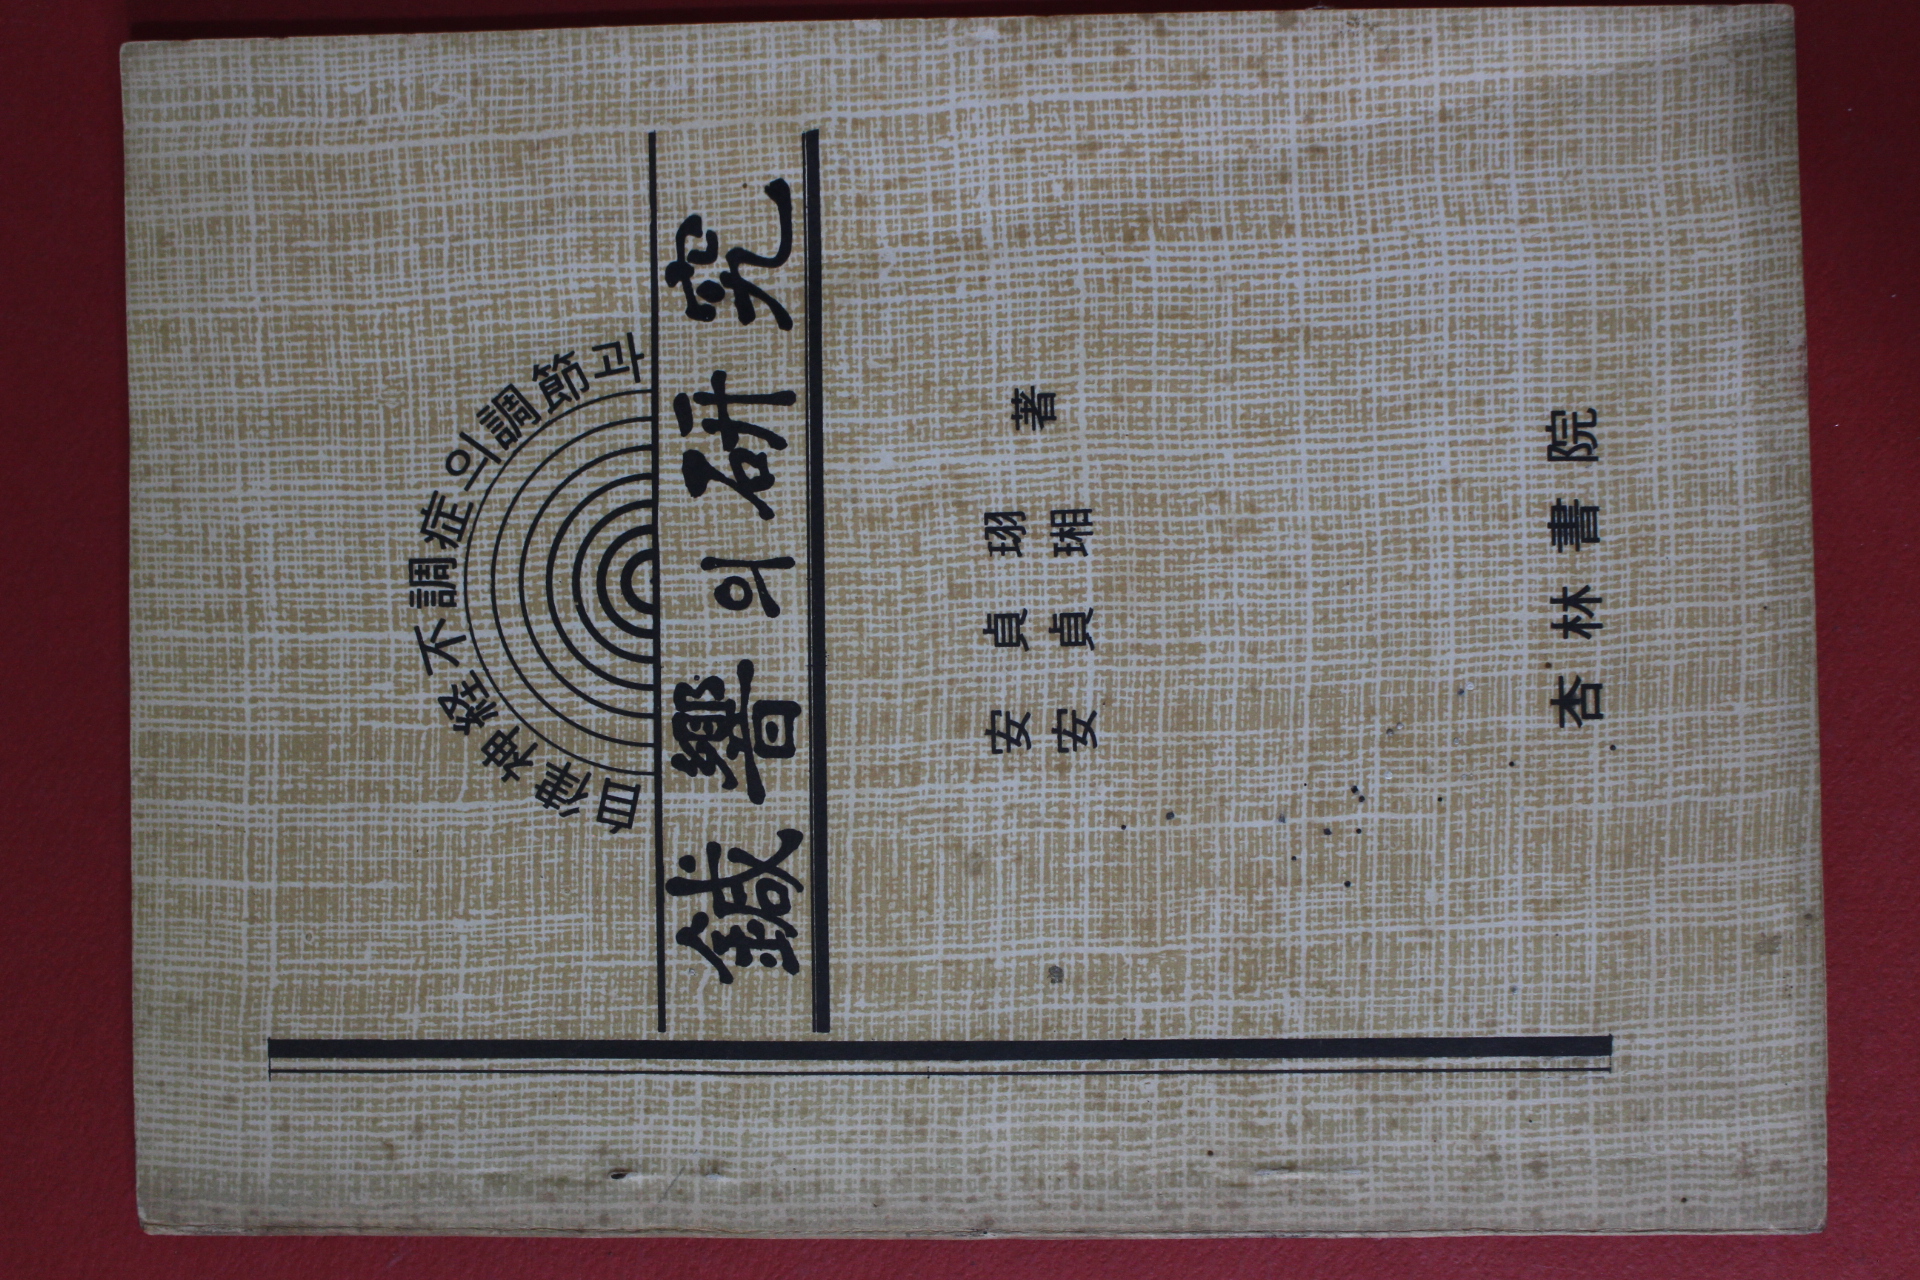 血衛神経不調症의調節과
鍼響의研究
安貞珝
安貞湘 著
杏林書院